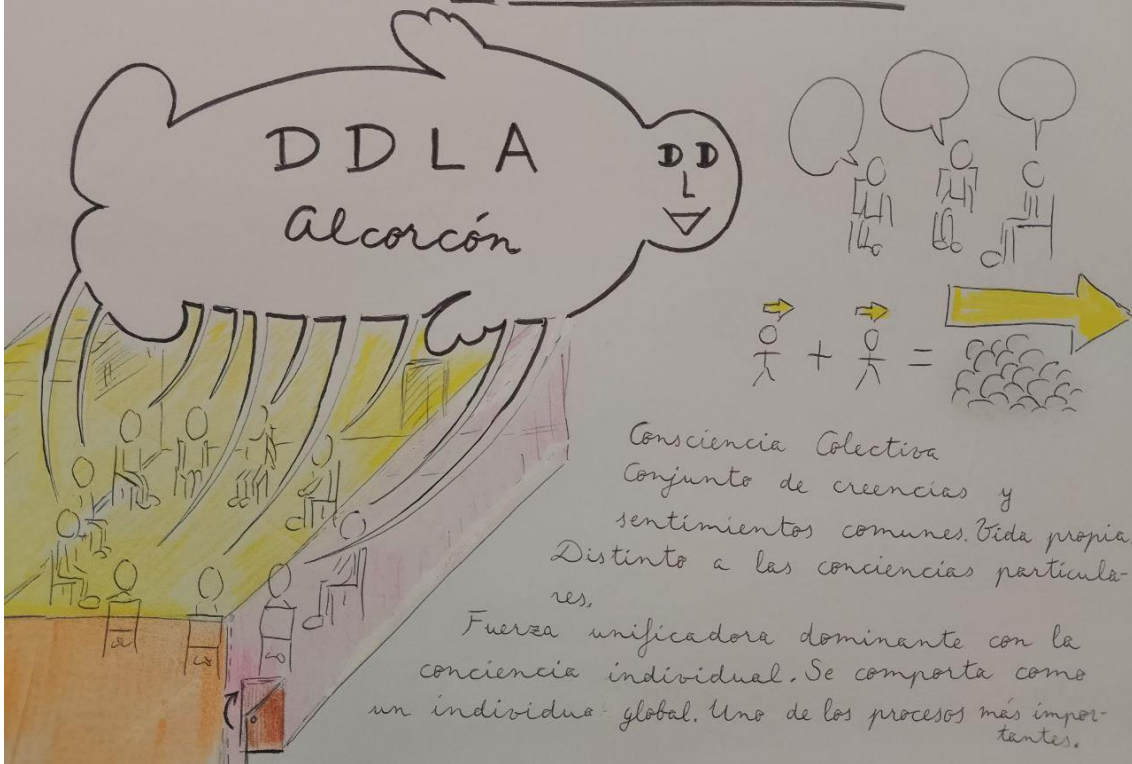 DDLA
Alcorcón
DD
L
+ =
Consciencia Colectiva
Conjunto de creencias y
sentimientos comunes. Vida propia.
Distinto a las conciencias particula-
res.
Fuerza unificadora dominante con la
conciencia individual. Se comporta como
un individuo global. Uno de los procesos más impor-
tantes.